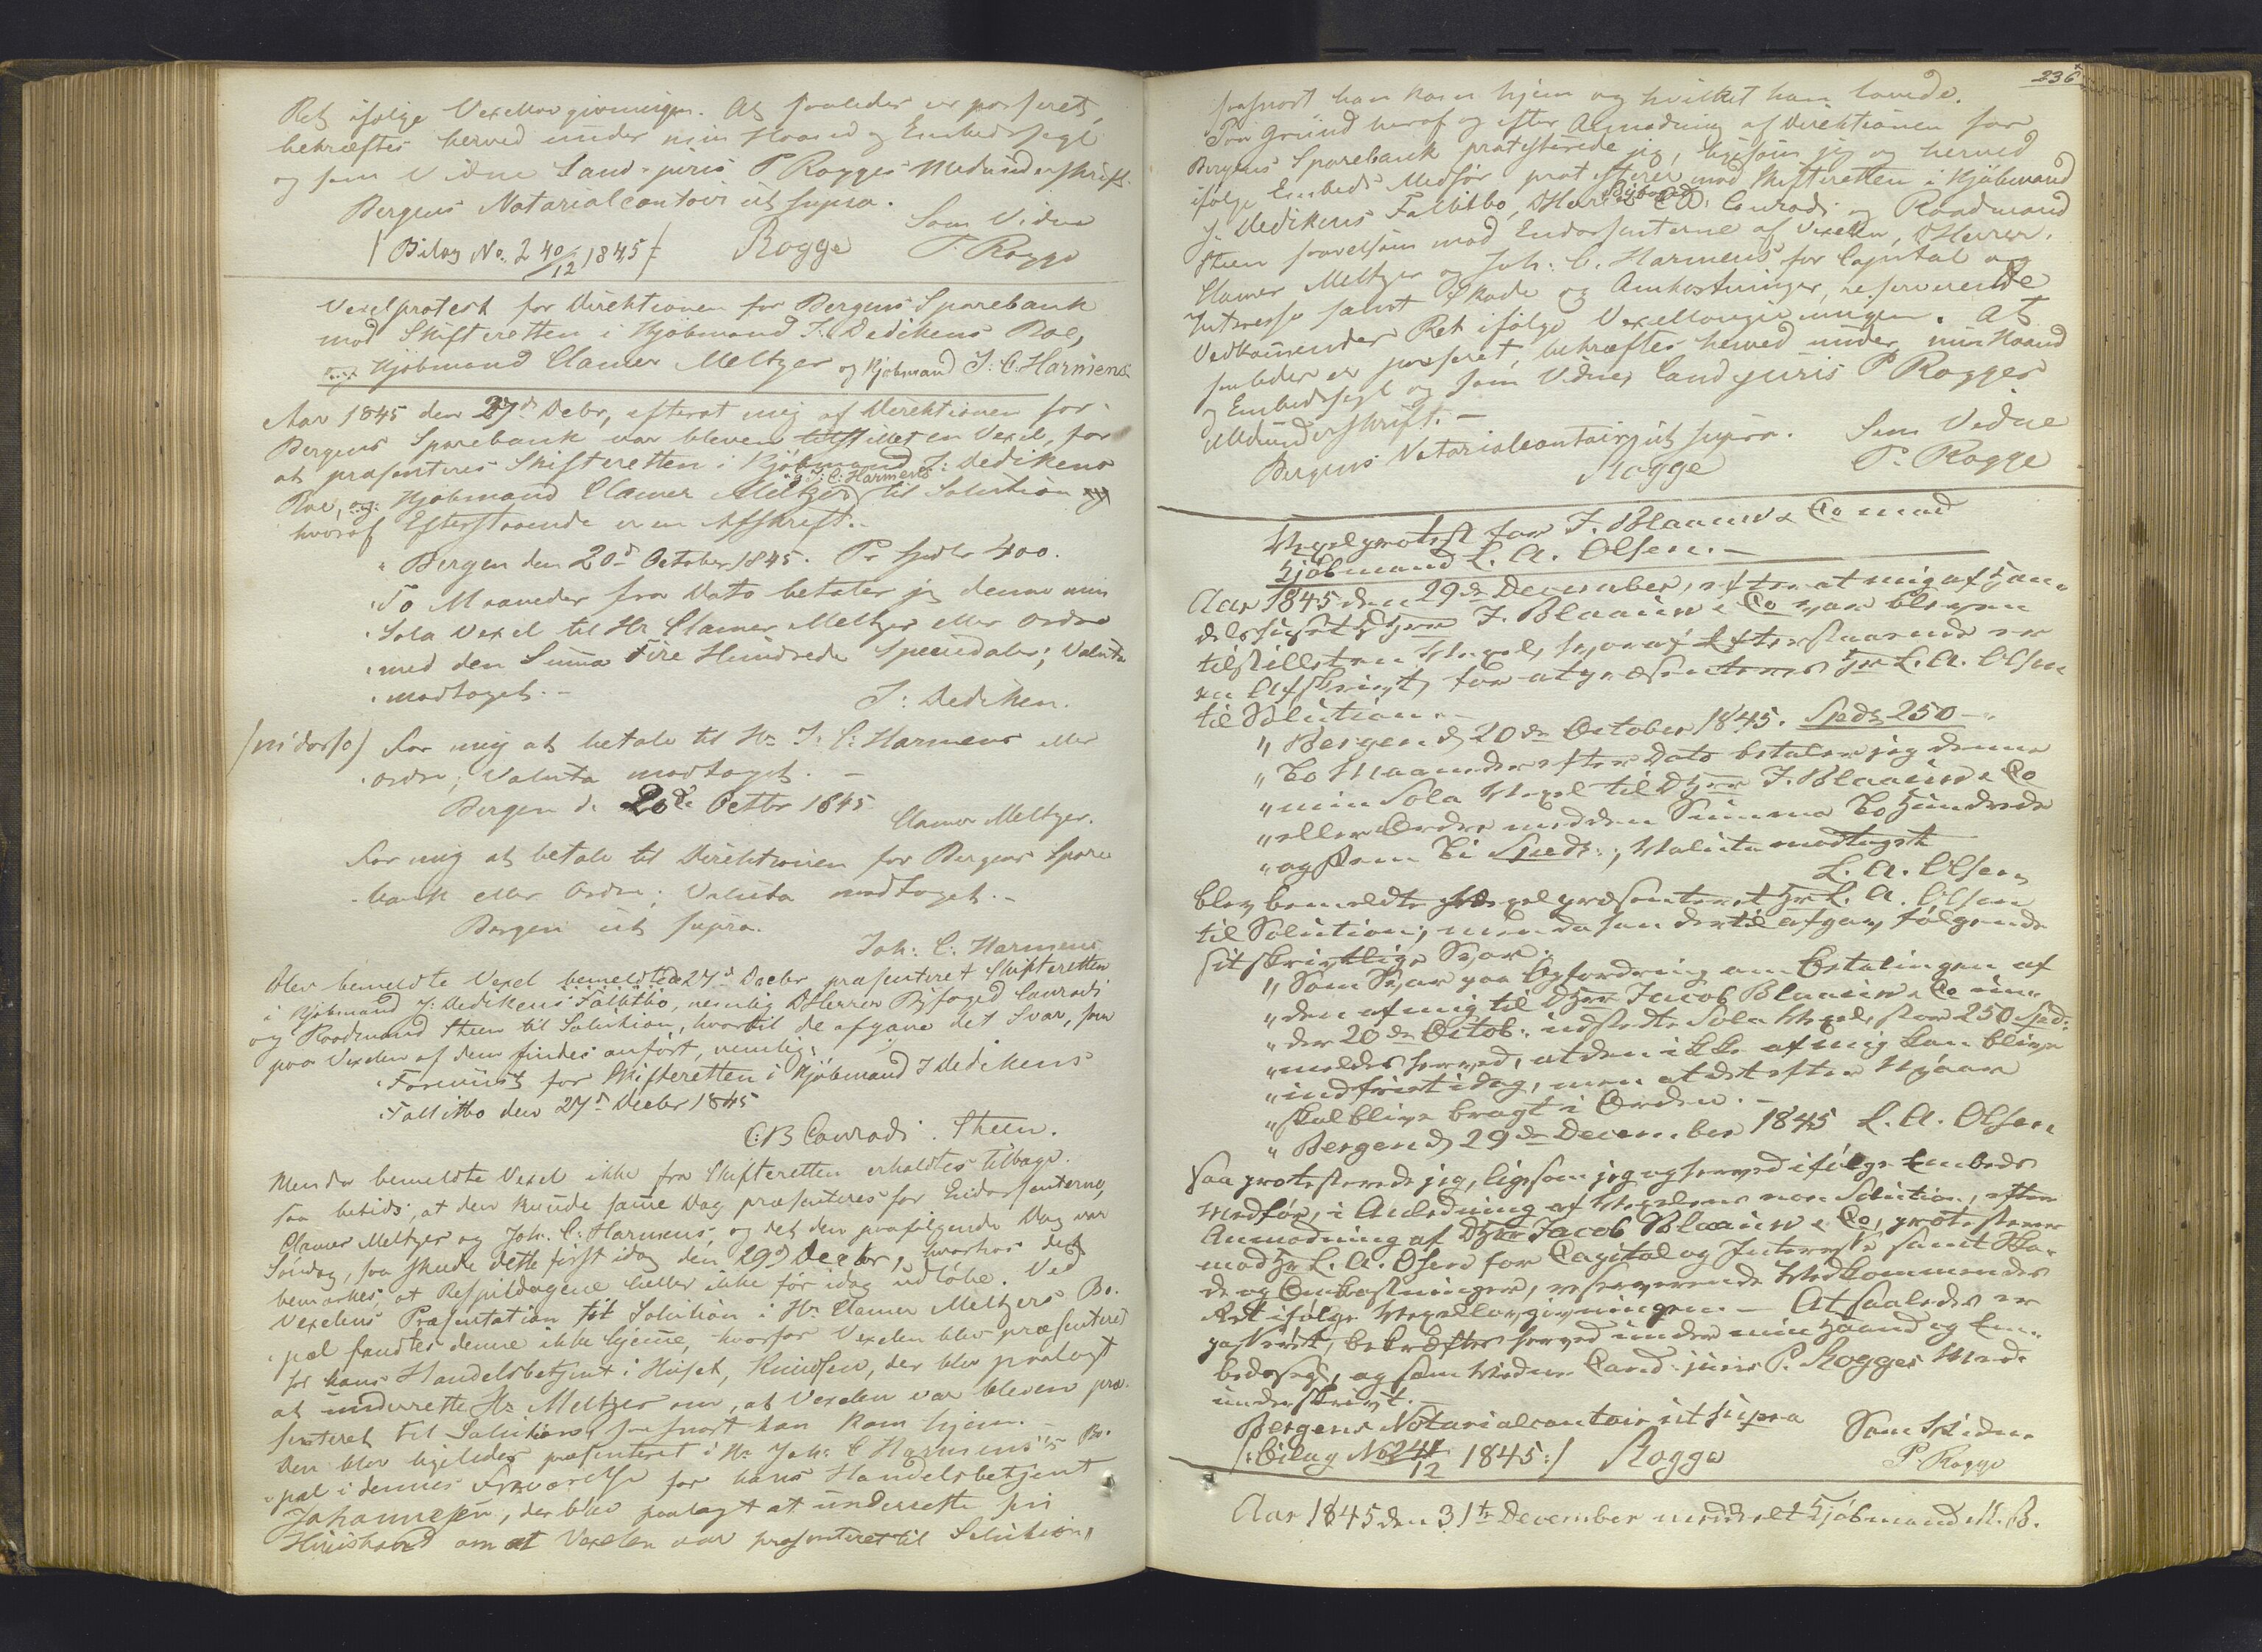 Ret ifølge Vexellovgivningen. At saaledes er passeret,
bekræftes herved under min Haand og Embedssegl
og som Vidne Cand. juris P Rogges Medunderskrift.
Bergens Notarialcontoir ut supra.
Som Vidne
(Bilag No. 240/12 1845) Rogge P. Rogge
Vexelprotest for Direktionen for Bergens Sparebank
mod Skifteretten i Kjøbmand J: Dedikens Boe,
og Kjøbmand Clamer Meltzer og Kjøbmand J: C: Harmens.
Aar 1845 den 27d Debr, efterat mig af Direktionen for
Bergens Sparebank var bleven tilstillet en Vexel, for
at præsenteres Skifteretten i Kjøbmand J: Dedikens
Boe, og Kjøbmand Clamer Meltzer og J: C: Harmens til Solution
hvoraf Efterstaaende er en Afskrift.
" Bergen den 20d October 1845. Pr Spdlr 400.
" To Maaneder fra Dato betaler jeg denne min
" Sola Vexel til Hr Clamer Meltzer eller Ordre
" med den Suma Fire Hundrede Speciedaler; Valuta
" modtaget.-
J: Dediken.
(in dorso) For mig at betale til Hr J: C: Harmens eller
" Ordre; Valuta modtaget. -
Bergen d. 20de Octbr 1845
Clamer Meltzer.
For mig at betale til Direktionen for Bergens Spare
" bank eller Ordre; Valuta modtaget.-
Bergen ut supra.
Joh: C: Harmens
Blev bemeldte Vexel bemeldte 27d Decbr præsenteret Skifteretten
i Kjøbmand J: Dedikens Fallitbo, nemlig DHerrer Byfoged Conradi
og Raadmand Steen til Solution, hvortil de afgave det Svar, som
paa Vexelen af dem findes anført, nemlig:
" Foreviist for Skifteretten i Kjøbmand J Dedikens
" Fallitbo den 27d Decbr 1845
C:B Conradi. Steen.
Men da bemeldte Vexel ikke fra Skifteretten erholdtes tilbage
saa betids, at den kunde same Dag præsenteres for Endossenterne,
Clamer Meltzer og Joh. C: Harmens, og det den paafølgende Dag var
Søndag, saa skede dette først idag den 29d Decbr, hvorhos det
bemærkes, at Respitdagene heller ikke før idag udløbe. Ved
Vexelens Præsentation til Solution i Hr Clamer Meltzers Bo-
" pæl fandtes denne ikke hjeme, hvorfor Vexelen blev præsenteret
for hans Handelsbetjent i Huset, Knudsen, der blev paalagt
at underrette Hr Meltzer om, at Vexelen var bleven præ-
senteret til Solution, saasnart han kom hjem. -
Den blev ligeledes præsenteret i Hr Joh: C Harmens's Bo-
" pæl i dennes Fraværelse for hans Handelsbetjent
Johannesen, der blev paalagt at underrette sin
Huusbond om at Vexelen var præsenteret til Solution,
236
saasnart han kom hjem og hvilket han lovede.
Paa Grund heraf og efter Anmodning af Direktionen for
Bergens Sparebank protesterede jeg, ligesom jeg og herved
ifølge Embeds Medfør protesterer mod Skifteretten i Kjøbmand
J. Dedikens Fallitbo, DHerr Byfoged C B. Conradi og Raadmand
Steen saavelsom mod Endossenterne af Vexelen, DHerrer.
Clamer Meltzer og Joh: C. Harmens for Capital og
Interesse samt Skade og Omkostninger, reserverende
Vedkommender Ret ifølge Vexellovgivningen. At
saaledes er passeret, bekræftes herved under min Haand
og Embedssegl og som Vidne, Cand juris P Rogges
Medunderskrift. -
Bergens Notarialcontoir ut supra. Som Vidne
Rogge P. Rogge
Vexelprotest for J. Blaauw & Co mod
Kjøbmand L. A. Olsen. -
Aar 1845 den 29de December, efter at mig af Han-
delshuset DHrr J. Blaauw & Co var bleven
tilstillet en Vexel, hvoraf Efterstaaende er
en Afskrift, for at præsenteres Hr L. A. Olsen
til Solution. -
" Bergen d 20de October 1845. Spds 250 -
" To Maaneder efter Dato betaler jeg denne
" min Sola Vexel til DHrr J. Blaauw & Co
" eller Ordre med den Summa To Hundrede
" og fem ti Spds.; Valuta modtaget
L. A. Olsen
blev bemeldte Vexel præsenteret Hr L. A. Olsen
til Solution; men da han dertil afgav følgende
sit skriftlige Svar:
" Som Svar paa Opfordring om Betalingen af
" den af mig til DHrr Jacob Blaauw & Co un-
" der 20de Octob. udstedte Sola Vexel, stor 250 Spd:
" meldes herved, at den ikke af mig kan blive
" indfriet idag, men at det efter Nyaar
" skal blive bragt i Orden. -
" Bergen d 29de December 1845 L. A. Olsen
Saa protesterede jeg, ligesom jeg og herved ifølge Embeds
Medfør, i Anledning af Vexelens non Solution, efter
Anmodning af DHrr Jacob Blaauw & Co, protesterer
mod Hr L. A. Olsen for Capital og Interesse samt Ska-
de og Omkostninger, reserverende Vedkommendes
Ret ifølge Vexellovgivningen. - At saaledes er
passeret, bekræftes herved under min Haand og Em-
bedssegl, og som Vidne Cand. juris P. Rogges Med-
underskrift.
Bergens Notarialcontoir ut supra Som Vidne
(: Bilag No 241/12 1845:) Rogge P. Rogge
Aar 1845 den 31te December meddelt Kjøbmand M. B.